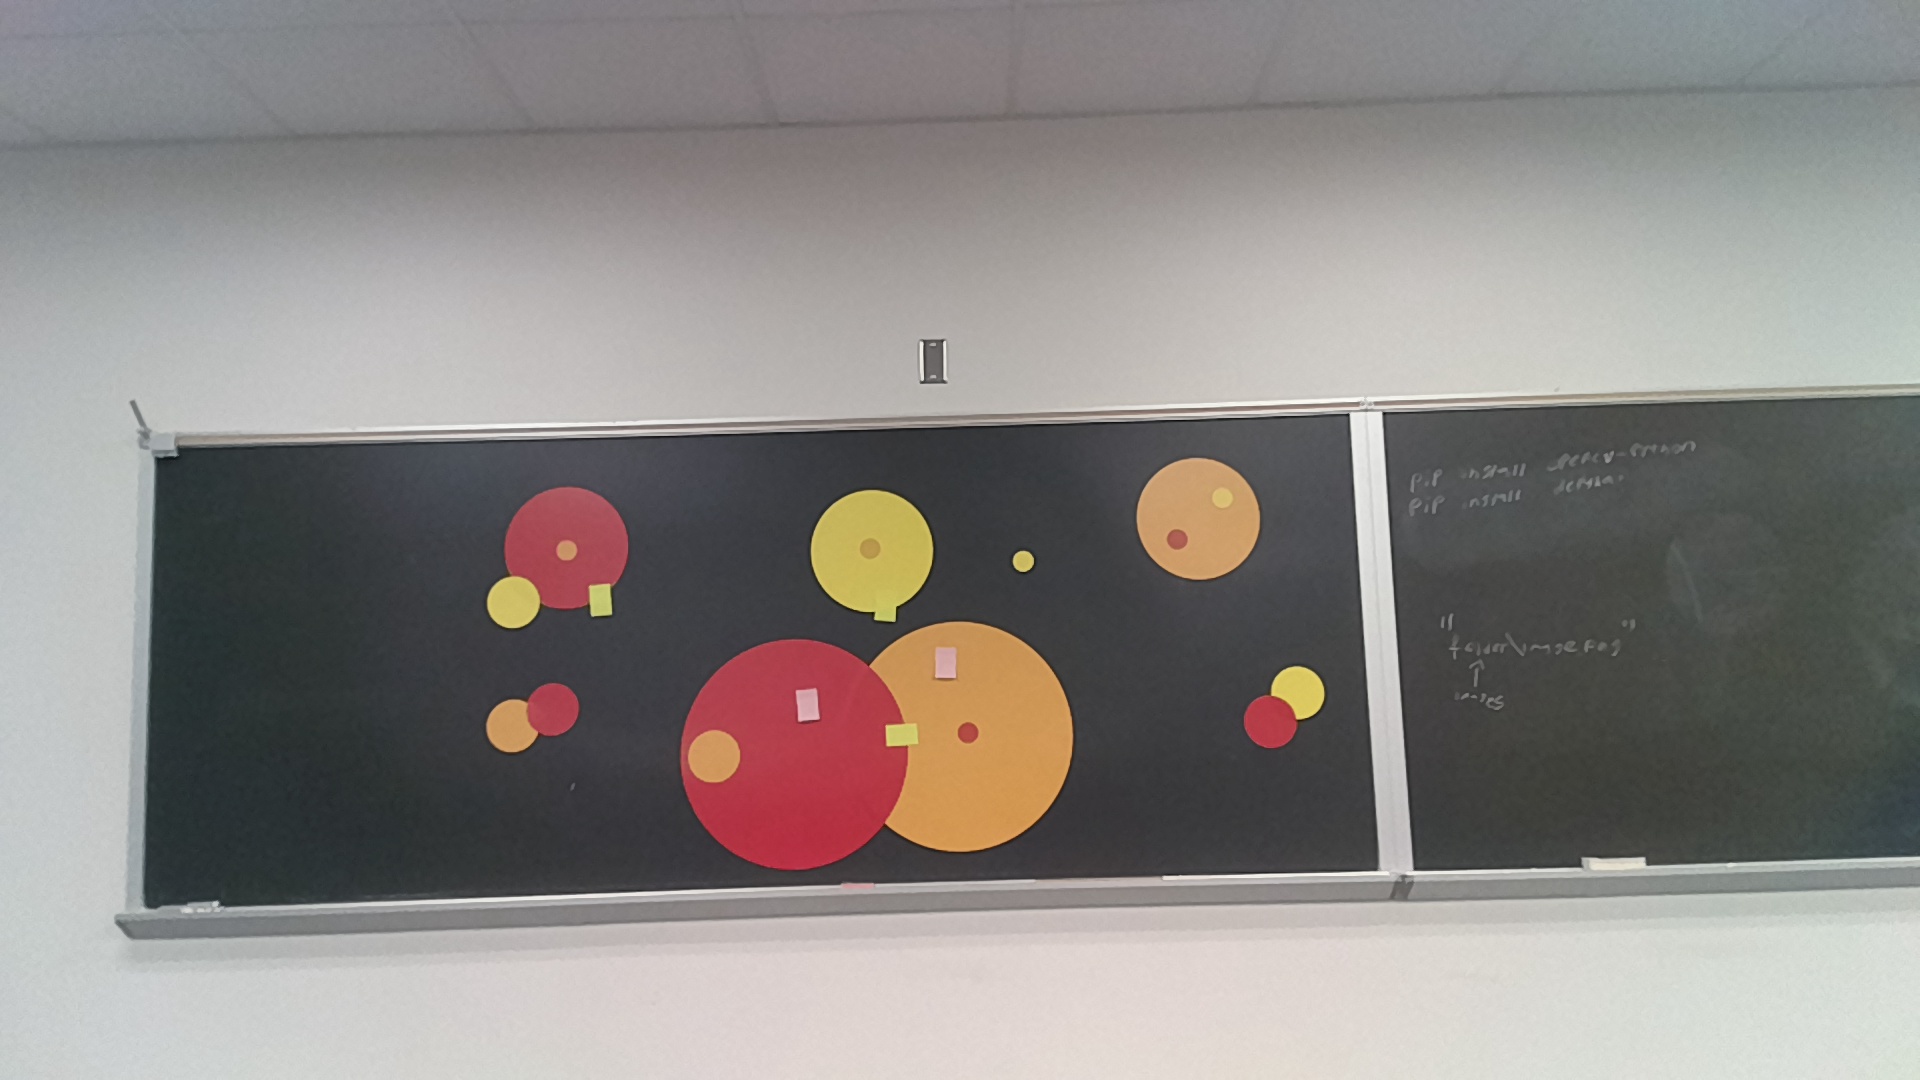 pip install opencv-python
pip install
"folder\image.png"
images